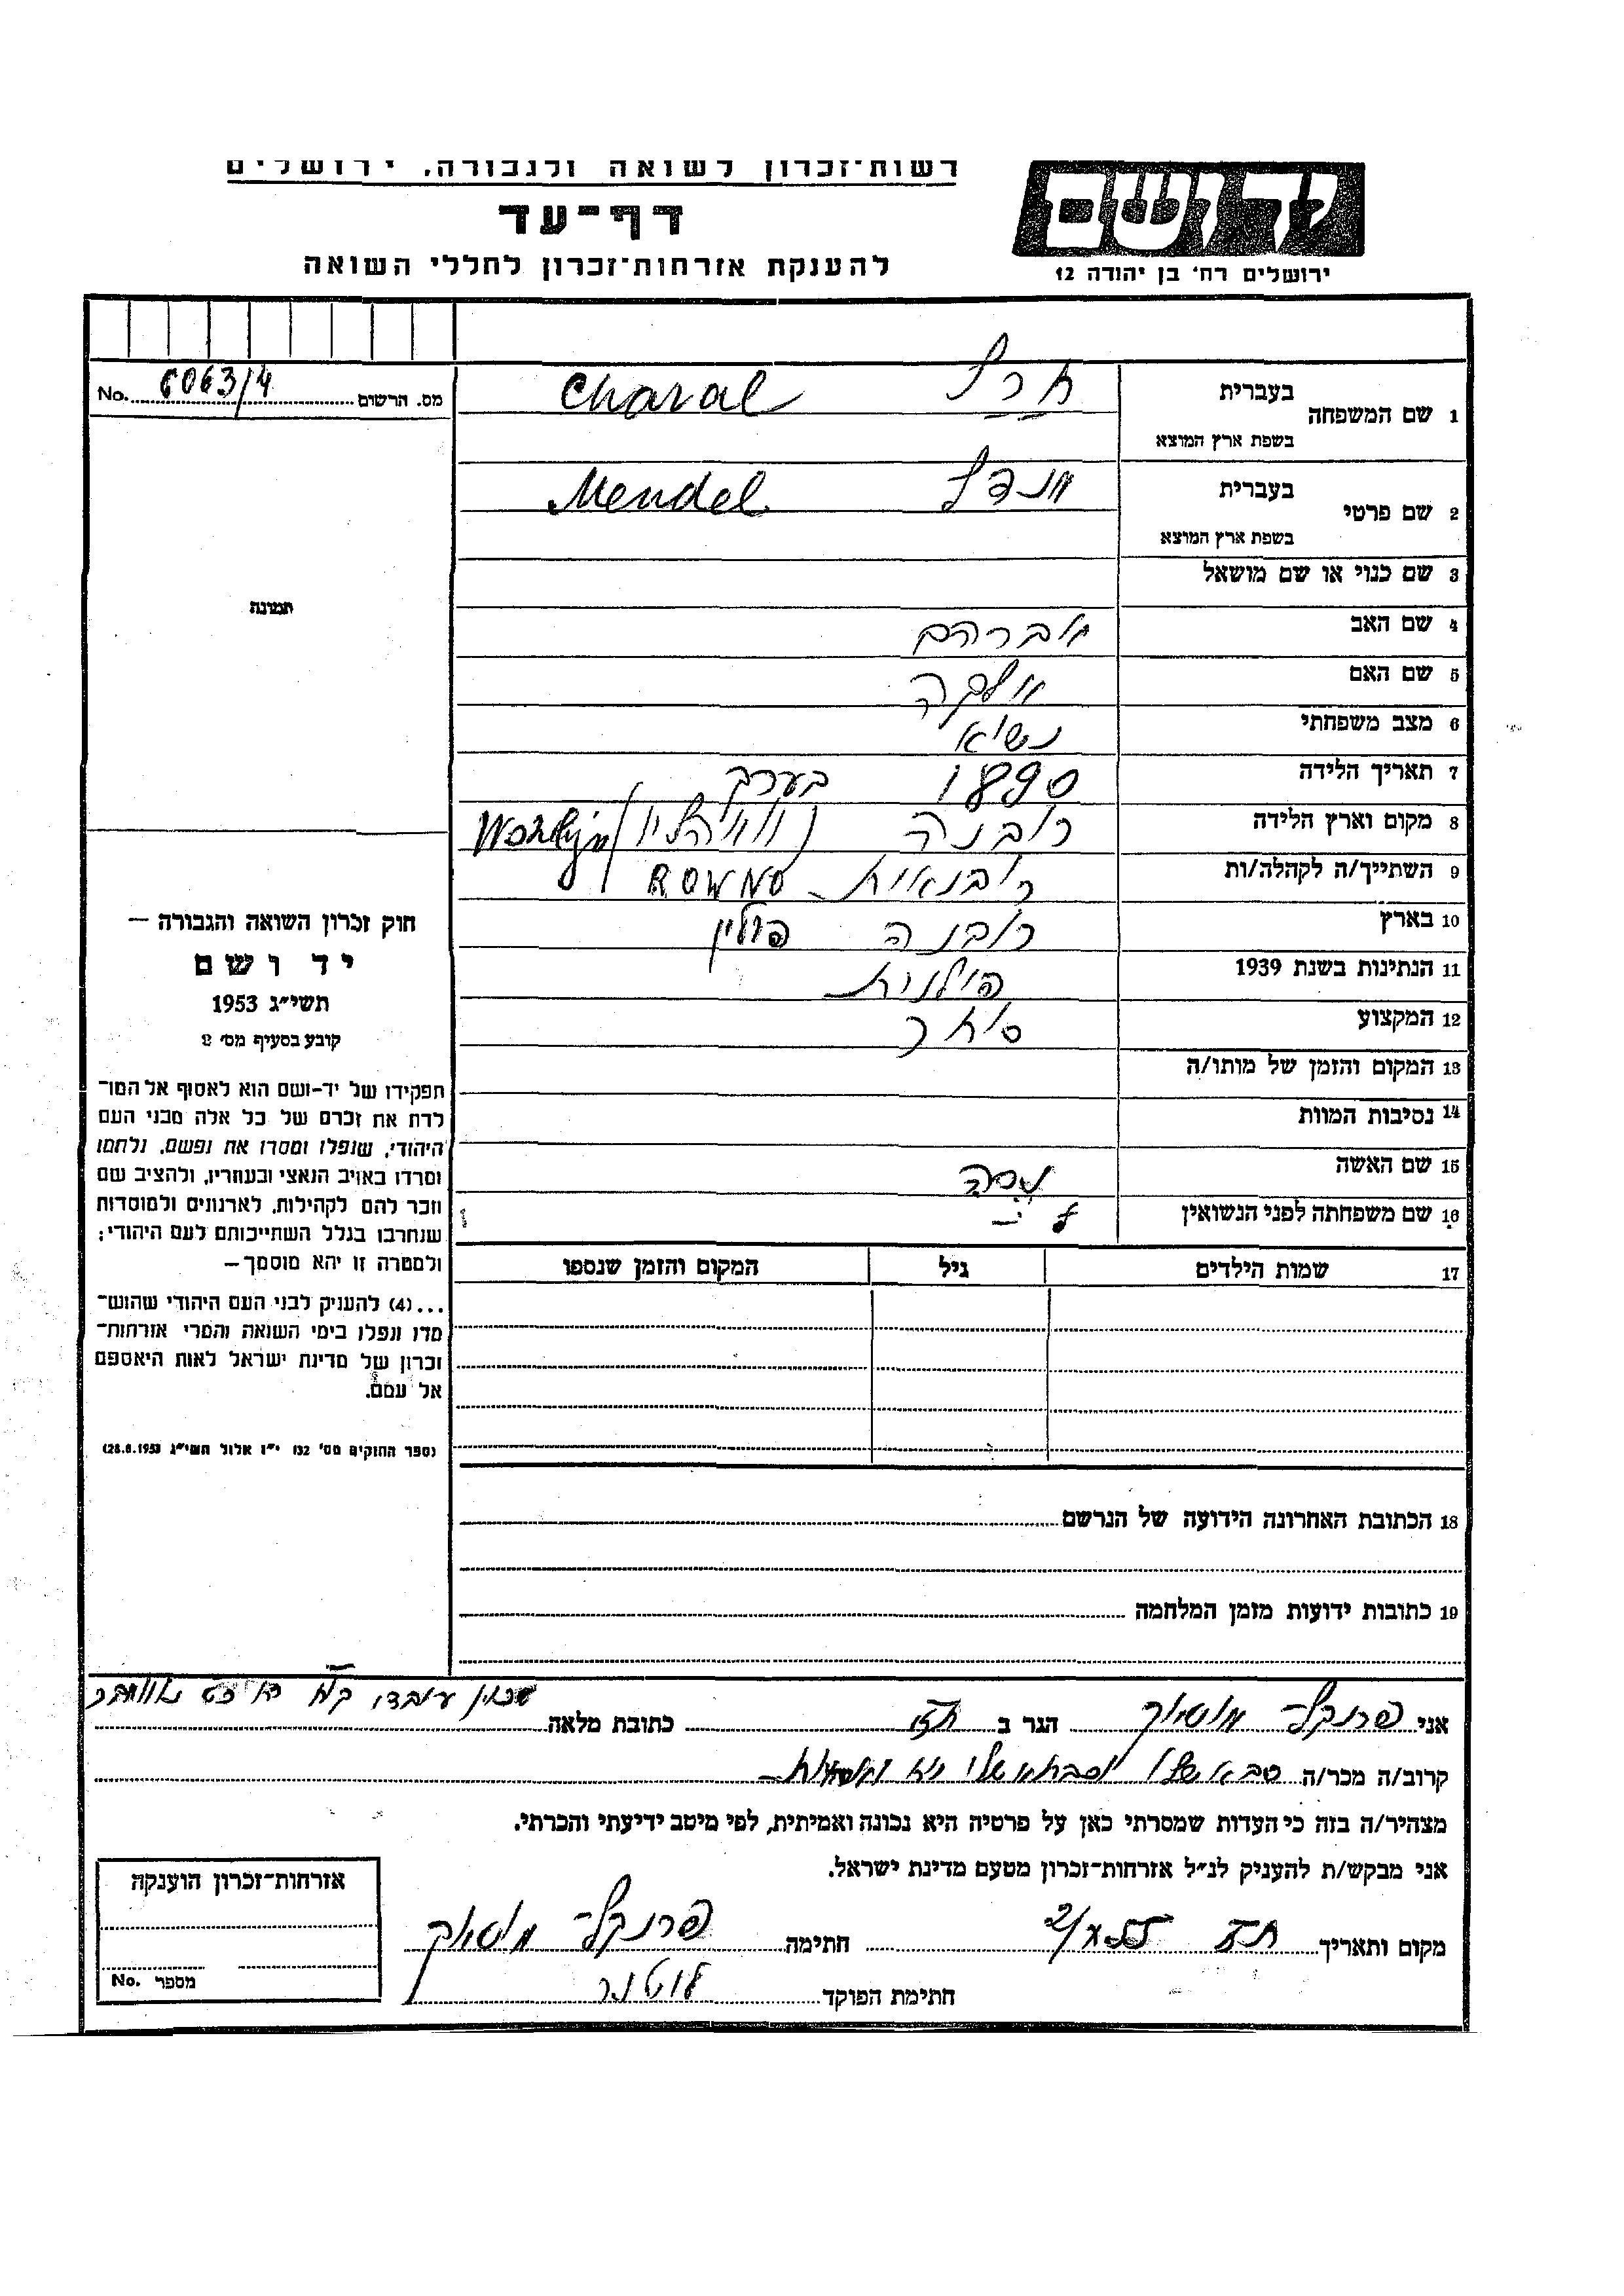 רשות־זכרון לשואה ולגבורה, ירושלים
יד ושם
דף־עד
להענקת אזרחות־זכרון לחללי השואה
ירושלים רח' בן יהודה 12
מס. הרשום No. 6063/4
1 שם המשפחה בעברית חרל Charal
בשפת ארץ המוצא
2 שם פרטי בעברית מנדל Mendel
בשפת ארץ המוצא
3 שם כנוי או שם מושאל
תמונה
4 שם האב אברהם
5 שם האם
6 מצב משפחתי נשוי
7 תאריך הלידה 1890 בערך
8 מקום וארץ הלידה רובנה
9 השתייך/ה לקהלה/ות רובנאית ROWNO
10 בארץ רובנה פולין
11 הנתינות בשנת 1939 פולנית
12 המקצוע סוחר
13 המקום והזמן של מותו/ה
14 נסיבות המוות
15 שם האשה
16 שם משפחתה לפני הנשואין
17 שמות הילדים גיל המקום והזמן שנספו
18 הכתובת האחרונה הידועה של הנרשם
19 כתובות ידועות מזמן המלחמה
חוק זכרון השואה והגבורה –
יד ושם
תשי"ג 1953
קובע בסעיף מס' 2
תפקידו של יד-ושם הוא לאסוף אל המו־
לדת את זכרם של כל אלה מבני העם
היהודי, שנפלו ומסרו את נפשם, נלחמו
ומרדו באויב הנאצי ובעוזריו, ולהציב שם
וזכר להם לקהילות, לארגונים ולמוסדות
שנחרבו בגלל השתייכותם לעם היהודי;
ולמטרה זו יהא מוסמך –
...(4) להעניק לבני העם היהודי שהוש־
מדו ונפלו בימי השואה והמרי אזרחות־
זכרון של מדינת ישראל לאות היאספם
אל עמם.
(ספר החוקים מס' 132 י"ז אלול תשי"ג 28.8.1953)
אני פרנקל הגר ב כתובת מלאה שכון עובדי
קרוב/ה מכר/ה
מצהיר/ה בזה כי העדות שמסרתי כאן על פרטיה היא נכונה ואמיתית, לפי מיטב ידיעתי והכרתי.
אני מבקש/ת להעניק לנ"ל אזרחות־זכרון מטעם מדינת ישראל.
מקום ותאריך חתימה פרנקל
חתימת הפוקד
אזרחות־זכרון הוענקה
מספר No.